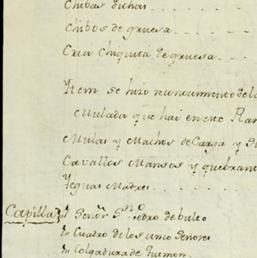 Chibas dichas
Chibos de gruesa
Cria chiquita de gruesa
Item se hizo reconocimiento de l
Mulada que hai en este Ran
Mulas y Machos de Carga y
Cavallos Mansos y quebran
Yeguas Madres
Capilla
Señor Sn Pedro de bulto
Un Cuadro de los cinco Señores
Un Colgadura de